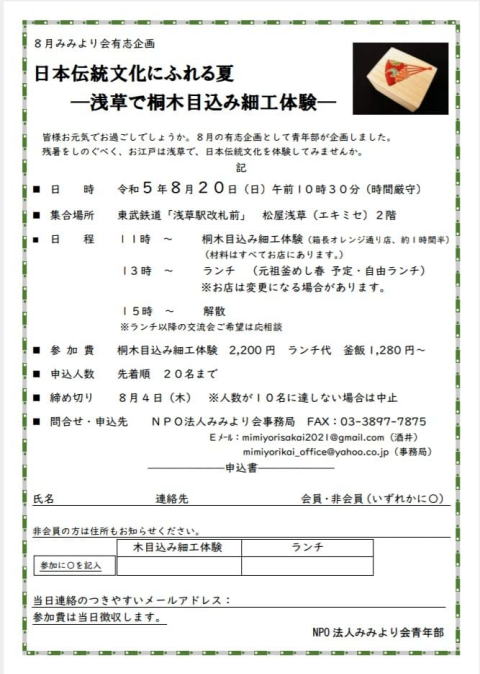 ８月みみより会有志企画
日本伝統文化にふれる夏
―浅草で桐木目込み細工体験―
皆様お元気でお過ごしでしょうか。８月の有志企画として青年部が企画しました。
残暑をしのぐべく、お江戸は浅草で、日本伝統文化を体験してみませんか。
記
■ 日　時　令和５年８月２０日（日）午前１０時３０分（時間厳守）
■ 集合場所　東武鉄道「浅草駅改札前」　松屋浅草（エキミセ）２階
■ 日　程　１１時　～　桐木目込み細工体験（箱長オレンジ通り店、約１時間半）
（材料はすべてお店にあります。）
１３時　～　ランチ　（元祖釜めし春 予定・自由ランチ）
※お店は変更になる場合があります。
１５時　～　解散
※ランチ以降の交流会ご希望は応相談
■ 参 加 費　桐木目込み細工体験　2,200円　ランチ代　釜飯1,280円～
■ 申込人数　先着順　２０名まで
■ 締め切り　８月４日（木）　※人数が１０名に達しない場合は中止
■ 問合せ・申込先　ＮＰＯ法人みみより会事務局　FAX：03-3897-7875
Ｅﾒｰﾙ：mimiyorisakai2021@gmail.com（酒井）
mimiyorikai_office@yahoo.co.jp（事務局）
――――――――申込書――――――――
氏名　連絡先　会員・非会員（いずれかに〇）
非会員の方は住所もお知らせください。
木目込み細工体験　ランチ
参加に〇を記入
当日連絡のつきやすいメールアドレス：
参加費は当日徴収します。
NPO法人みみより会青年部